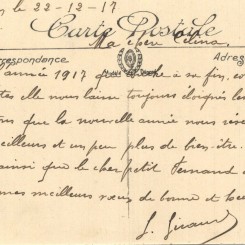 le 22-12-17
Carte Postale
Ma chère Célina
respondance
Adres
année 1917 touche à sa fin, co
elle nous laisse toujours éloignés les
que la nouvelle année nous rése
meilleurs et un peu plus de bien-être.
ainsi que le cher petit Fernand
mes meilleurs vœux de bonne et heu
S. Giraud